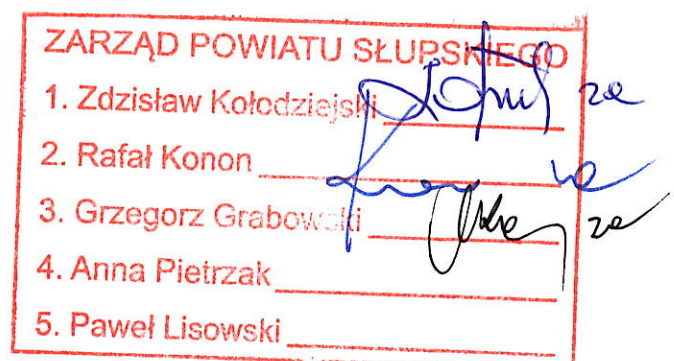 ZARZĄD POWIATU SŁUPSKIEGO
1. Zdzisław Kołodziejski za
2. Rafał Konon
3. Grzegorz Grabowski za
4. Anna Pietrzak
5. Paweł Lisowski